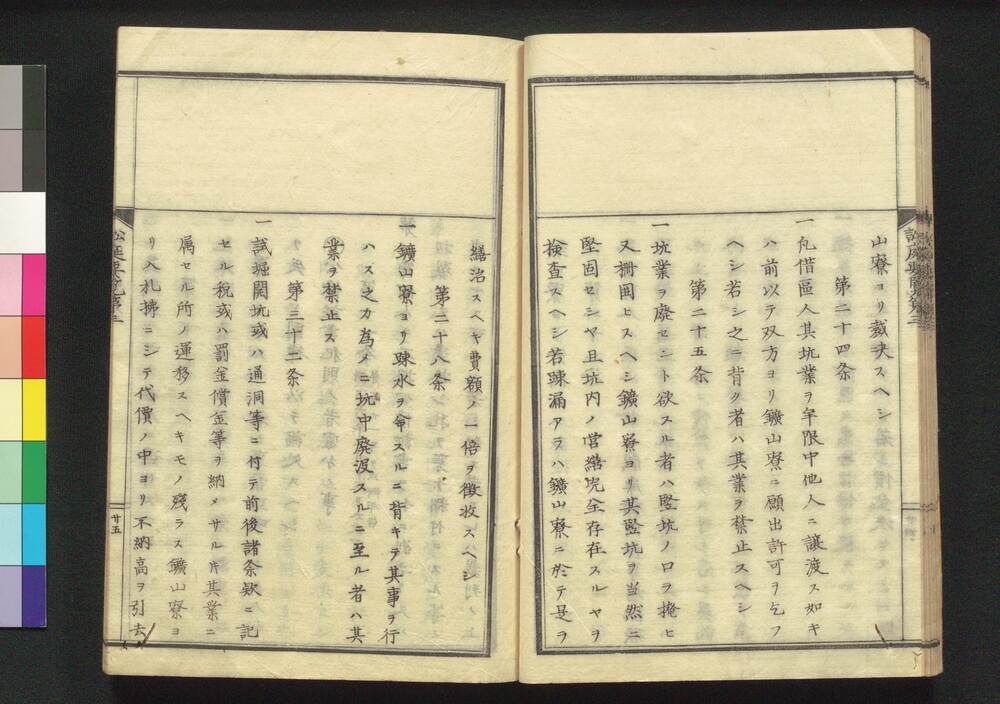 山寮ヨリ裁决スヘシ
第二十四条
一凢借區人其坑業ヲ年限中他人ニ譲渡ス如キ
ハ前以テ双方ヨリ鑛山寮ニ願出許可ヲ乞フ
ヘシ若シ之ニ背ク者ハ其業ヲ禁止スヘシ
第二十五条
一坑業ヲ廃セント欲スル者ハ竪坑ノ口ヲ掩ヒ
又柵囲ヒスヘシ鑛山寮ヨリ其竪坑ヲ当然ニ
堅固セシヤ且坑内ノ営繕完全存在スルヤヲ
検査スヘシ若踈漏アラハ鑛山寮ニ於テ是ヲ
繕治スヘヤ費額ノ一倍ヲ徴收スヘシ
第二十八条
一鑛山寮ヨリ踈水ヲ命スルニ背キテ其事ヲ行
ハス之カ為メニ坑中廃没スルニ至ル者ハ其
業ヲ禁止ス
第三十二条
一試堀開坑或ハ通洞等ニ付テ前後諸条欵ニ記
セル税或ハ罰金償金等ヲ納メサル片其業ニ
属セル所ノ運移スヘキモノ残ラス鑛山寮ヨ
リ入札拂ニシテ代價ノ中ヨリ不納高ヲ引去
廿五